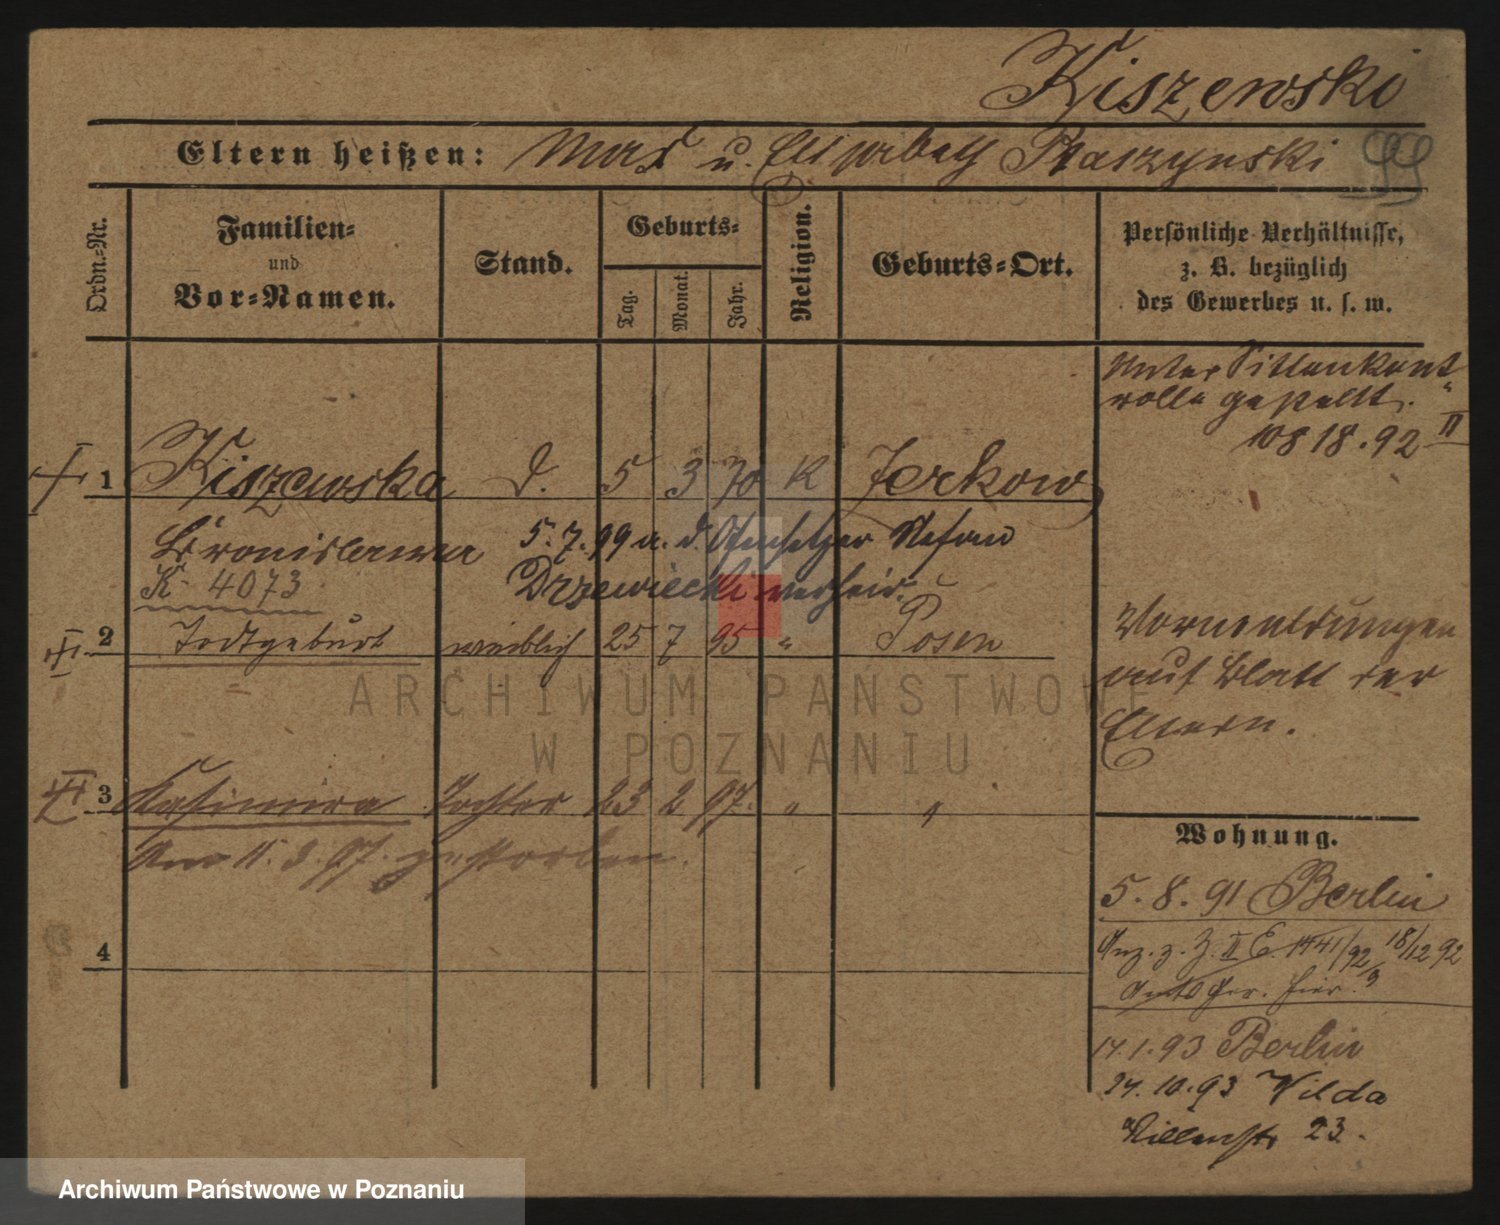 Kiszewski
Eltern heißen: u. Elisabeth Ptaszynski 99
Ordn.=Nr.
Familien=
und
Vor=Namen.
Stand.
Geburts=
Tag.
Monat.
Jahr.
Religion.
Geburts=Ort.
Persönliche Verhältnisse,
z. B. bezüglich
des Gewerbes u. s. w.
Unter Sittenkont
rolle gestellt.
18.92 II
1 Kiszewska d. 5 3 70 K Jerkow
Bronislawa 5.7.99 a. d. Ofensetzer Stefan
K 4073 Drzewiecki verheir.
2 Todtgeburt weiblich 25 7 95 " Posen
Vormerkungen
auf Blatt der
Eltern.
3 Kasimira Tochter 23 2 97. " "
Am 11.3.97. gestorben.
4
Wohnung.
5.8.91 Berlin
Anz. z. Z. II E. 1441/92 18/12 92
hier.
14.1.93 Berlin
24.10.93 Wilda
23.
ARCHIWUM PAŃSTWOWE
W POZNANIU
Archiwum Państwowe w Poznaniu